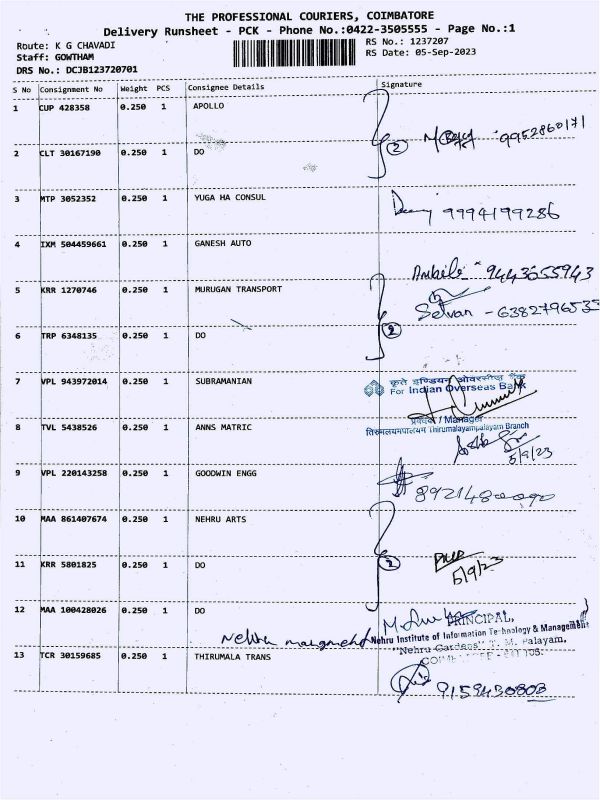 THE PROFESSIONAL COURIERS, COIMBATORE
Delivery Runsheet - PCK - Phone No.:0422-3505555 - Page No.:1
Route: K G CHAVADI
RS No.: 1237207
Staff: GOWTHAM
RS Date: 05-Sep-2023
DRS No.: DCJB123720701
S No Consignment No Weight PCS Consignee Details Signature
1 CUP 428358 0.250 1 APOLLO
9952860171
2 CLT 30167190 0.250 1 DO 2
3 MTP 3052352 0.250 1 YUGA HA CONSUL
9994199286
4 IXM 504459661 0.250 1 GANESH AUTO
9443655943
5 KRR 1270746 0.250 1 MURUGAN TRANSPORT
Selvan - 6382796533
6 TRP 6348135 0.250 1 DO 2
7 VPL 943972014 0.250 1 SUBRAMANIAN
कृते इण्डियन ओवरसीज़ बैंक
For Indian Overseas Bank
8 TVL 5438526 0.250 1 ANNS MATRIC
/ Manager
Thirumalayampalayam Branch
5/9/23
9 VPL 220143258 0.250 1 GOODWIN ENGG
10 MAA 861407674 0.250 1 NEHRU ARTS
11 KRR 5801825 0.250 1 DO 2
5/9/23
12 MAA 100428026 0.250 1 DO
PRINCIPAL,
Nehru Institute of Information Technology & Management
"Nehru Gardens" T. M. Palayam,
13 TCR 30159685 0.250 1 THIRUMALA TRANS
9159430803